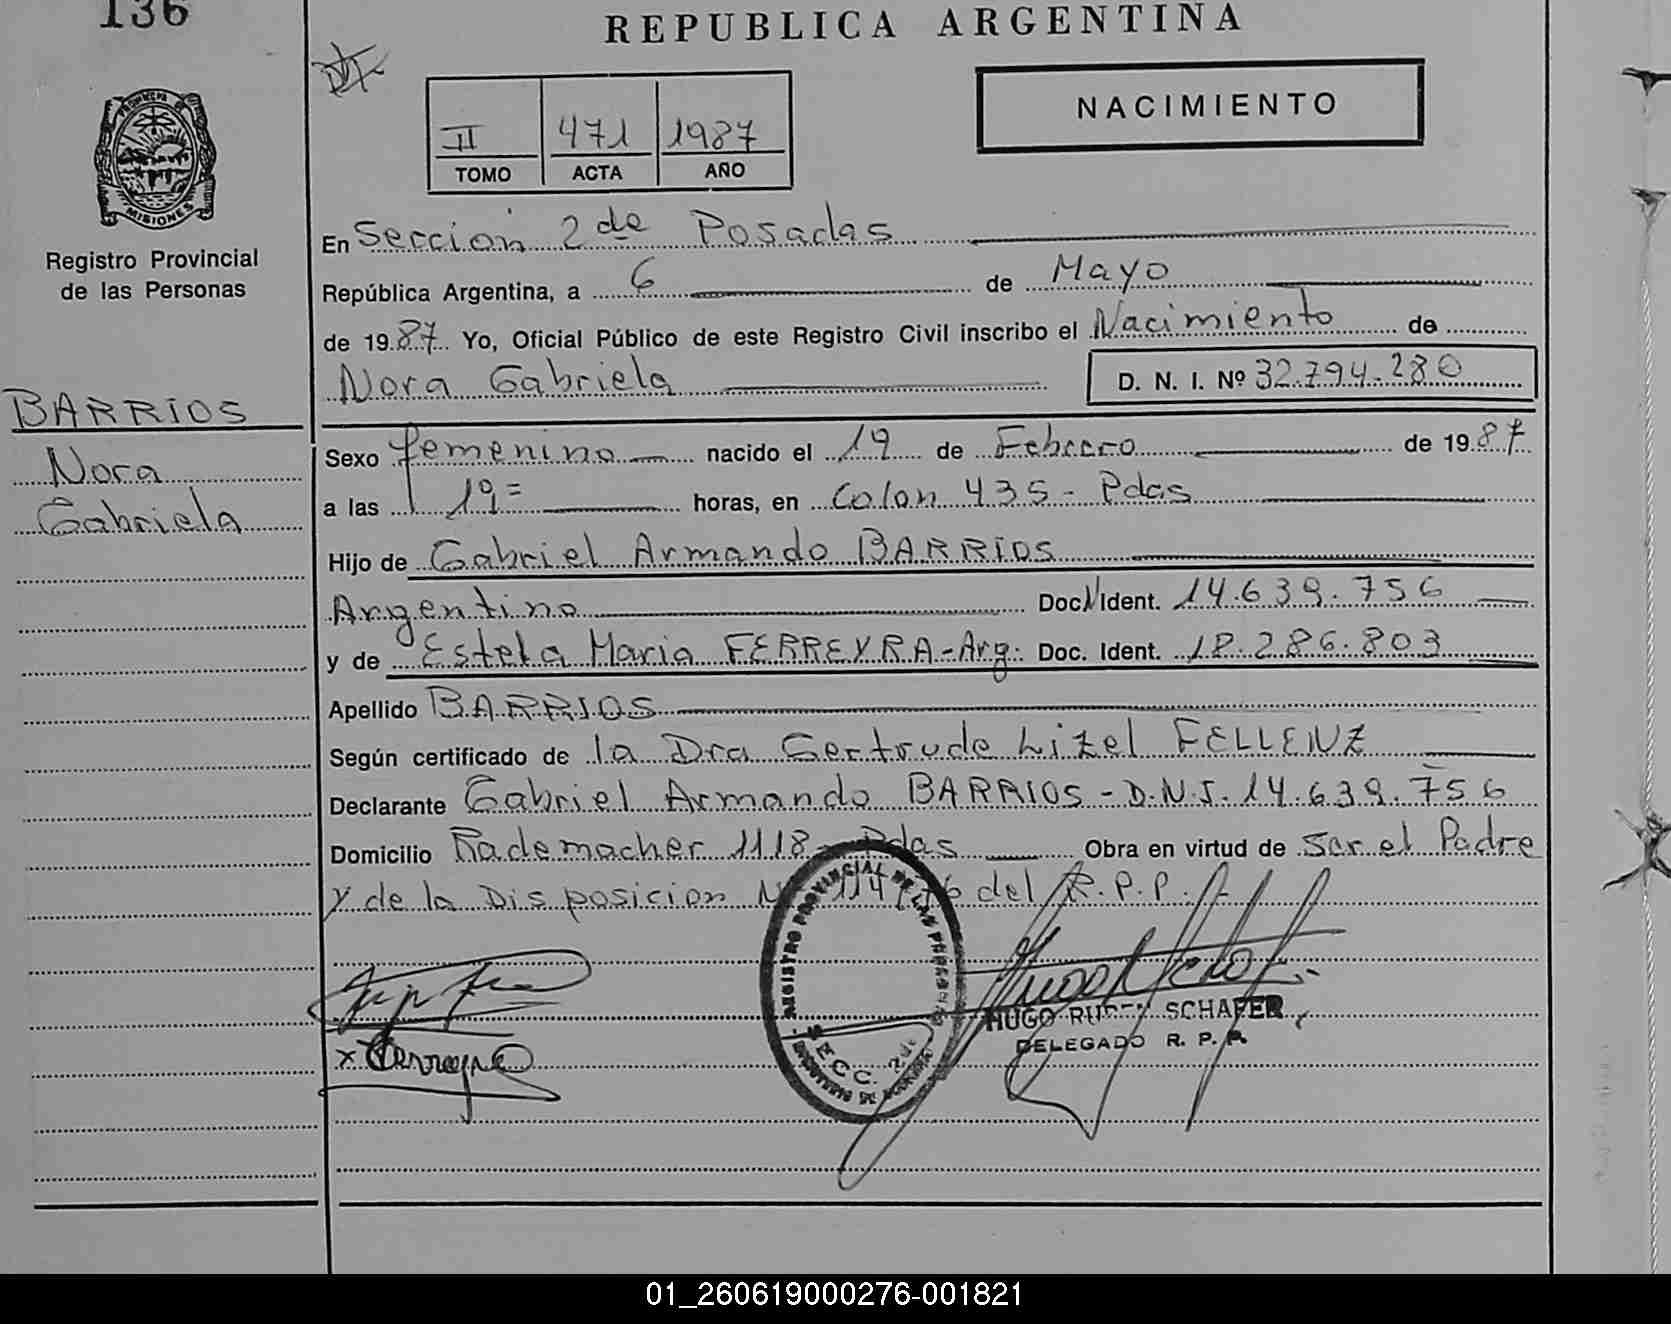 136
REPUBLICA ARGENTINA
NACIMIENTO
II 471 1987
TOMO ACTA AÑO
PROVINCIA DE
MISIONES
Registro Provincial
de las Personas
BARRIOS
Nora
Gabriela
En Seccion 2da de Posadas
República Argentina, a 6 de Mayo
de 1987 Yo, Oficial Público de este Registro Civil inscribo el Nacimiento de
Nora Gabriela D. N. I. Nº 32.794.280
Sexo femenino nacido el 19 de Febrero de 1987
a las 19= horas, en Colon 435 - Pdas
Hijo de Gabriel Armando BARRIOS
Argentino Doc. Ident. 14.639.756
y de Estela Maria FERREYRA - Arg. Doc. Ident. 18.286.803
Apellido BARRIOS
Según certificado de la Dra Gertrude Lizel FELLENZ
Declarante Gabriel Armando BARRIOS - D.N.I. 14.639.756
Domicilio Rademacher 1118 - Pdas Obra en virtud de Ser el Padre
y de la Disposicion 114/76 del R.P.P.
REGISTRO PROVINCIAL DE LAS PERSONAS
SECC. 2da
HUGO RUBEN SCHAFER
DELEGADO R. P. P.
01_260619000276-001821